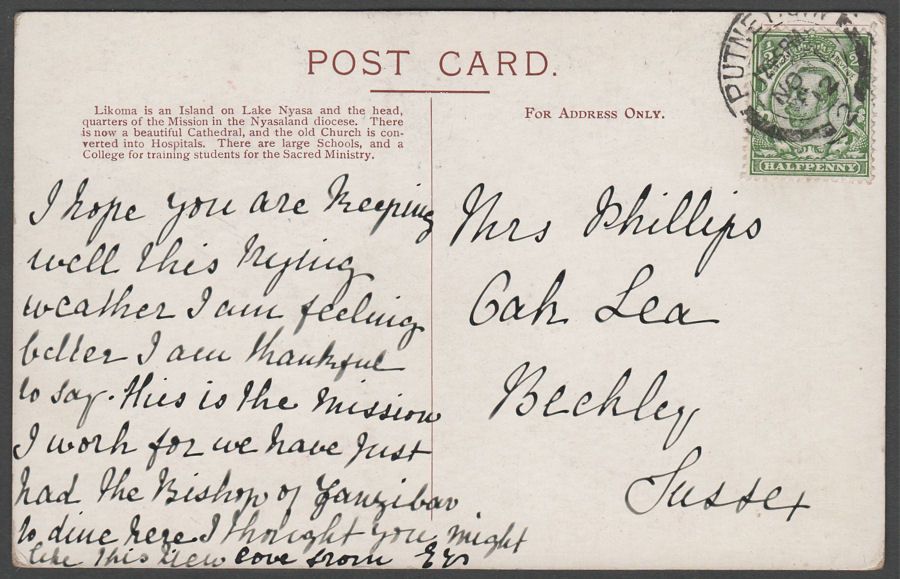 POST CARD.
Likoma is an Island on Lake Nyasa and the head,
quarters of the Mission in the Nyasaland diocese. There
is now a beautiful Cathedral, and the old Church is con-
verted into Hospitals. There are large Schools, and a
College for training students for the Sacred Ministry.
FOR ADDRESS ONLY.
PUTNEY
HALFPENNY
I hope you are keeping
well this trying
weather I am feeling
better I am thankful
to say. this is the mission
I work for we have just
had the Bishop of Zanzibar
to dine here I thought you might
like this view love from
Mrs Phillips
Oak Lea
Beckley
Sussex